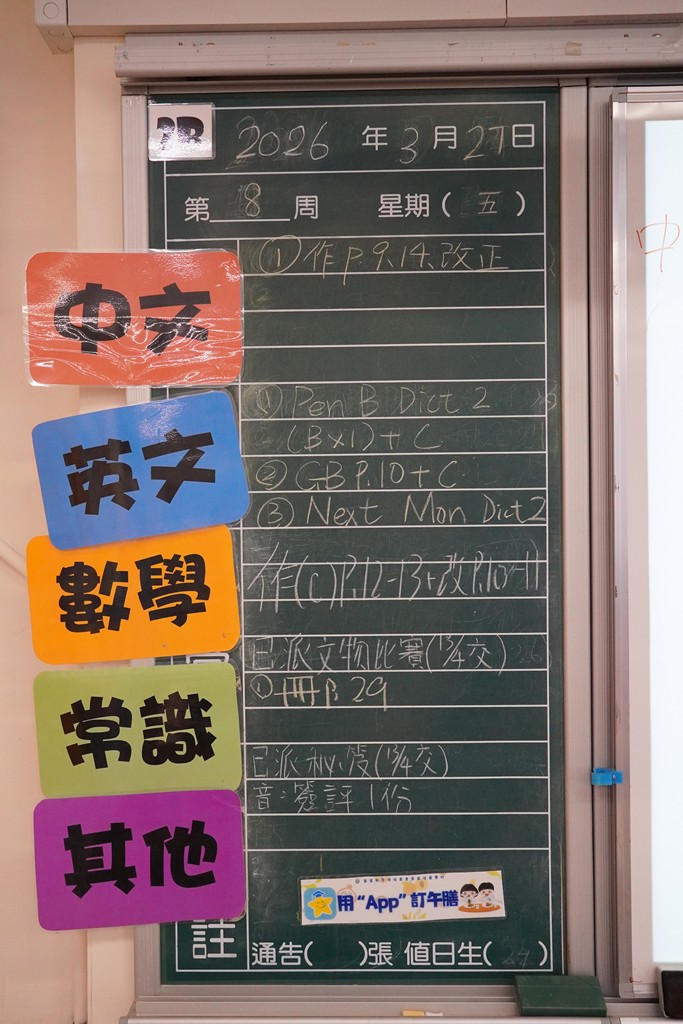 2B 2026年3月27日
第8周 星期(五)
中文
①作 p.9、14、改正
英文
① Pen B Dict 2
(B×1) + C
② GB P.10 + C
③ Next Mon Dict 2
數學
作(C)P.12-13+改P.10-11
常識
已派文物比賽(13/4交)
① 冊P. 29
其他
已派 (13/4交)
音：簽評1份
用“App”訂午膳
註
通告( )張 值日生(29)
中